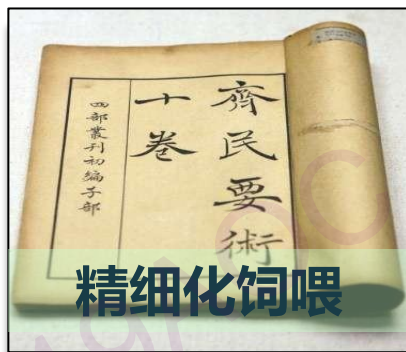 齊民要術
十卷
四部叢刊初編子部
精细化饲喂